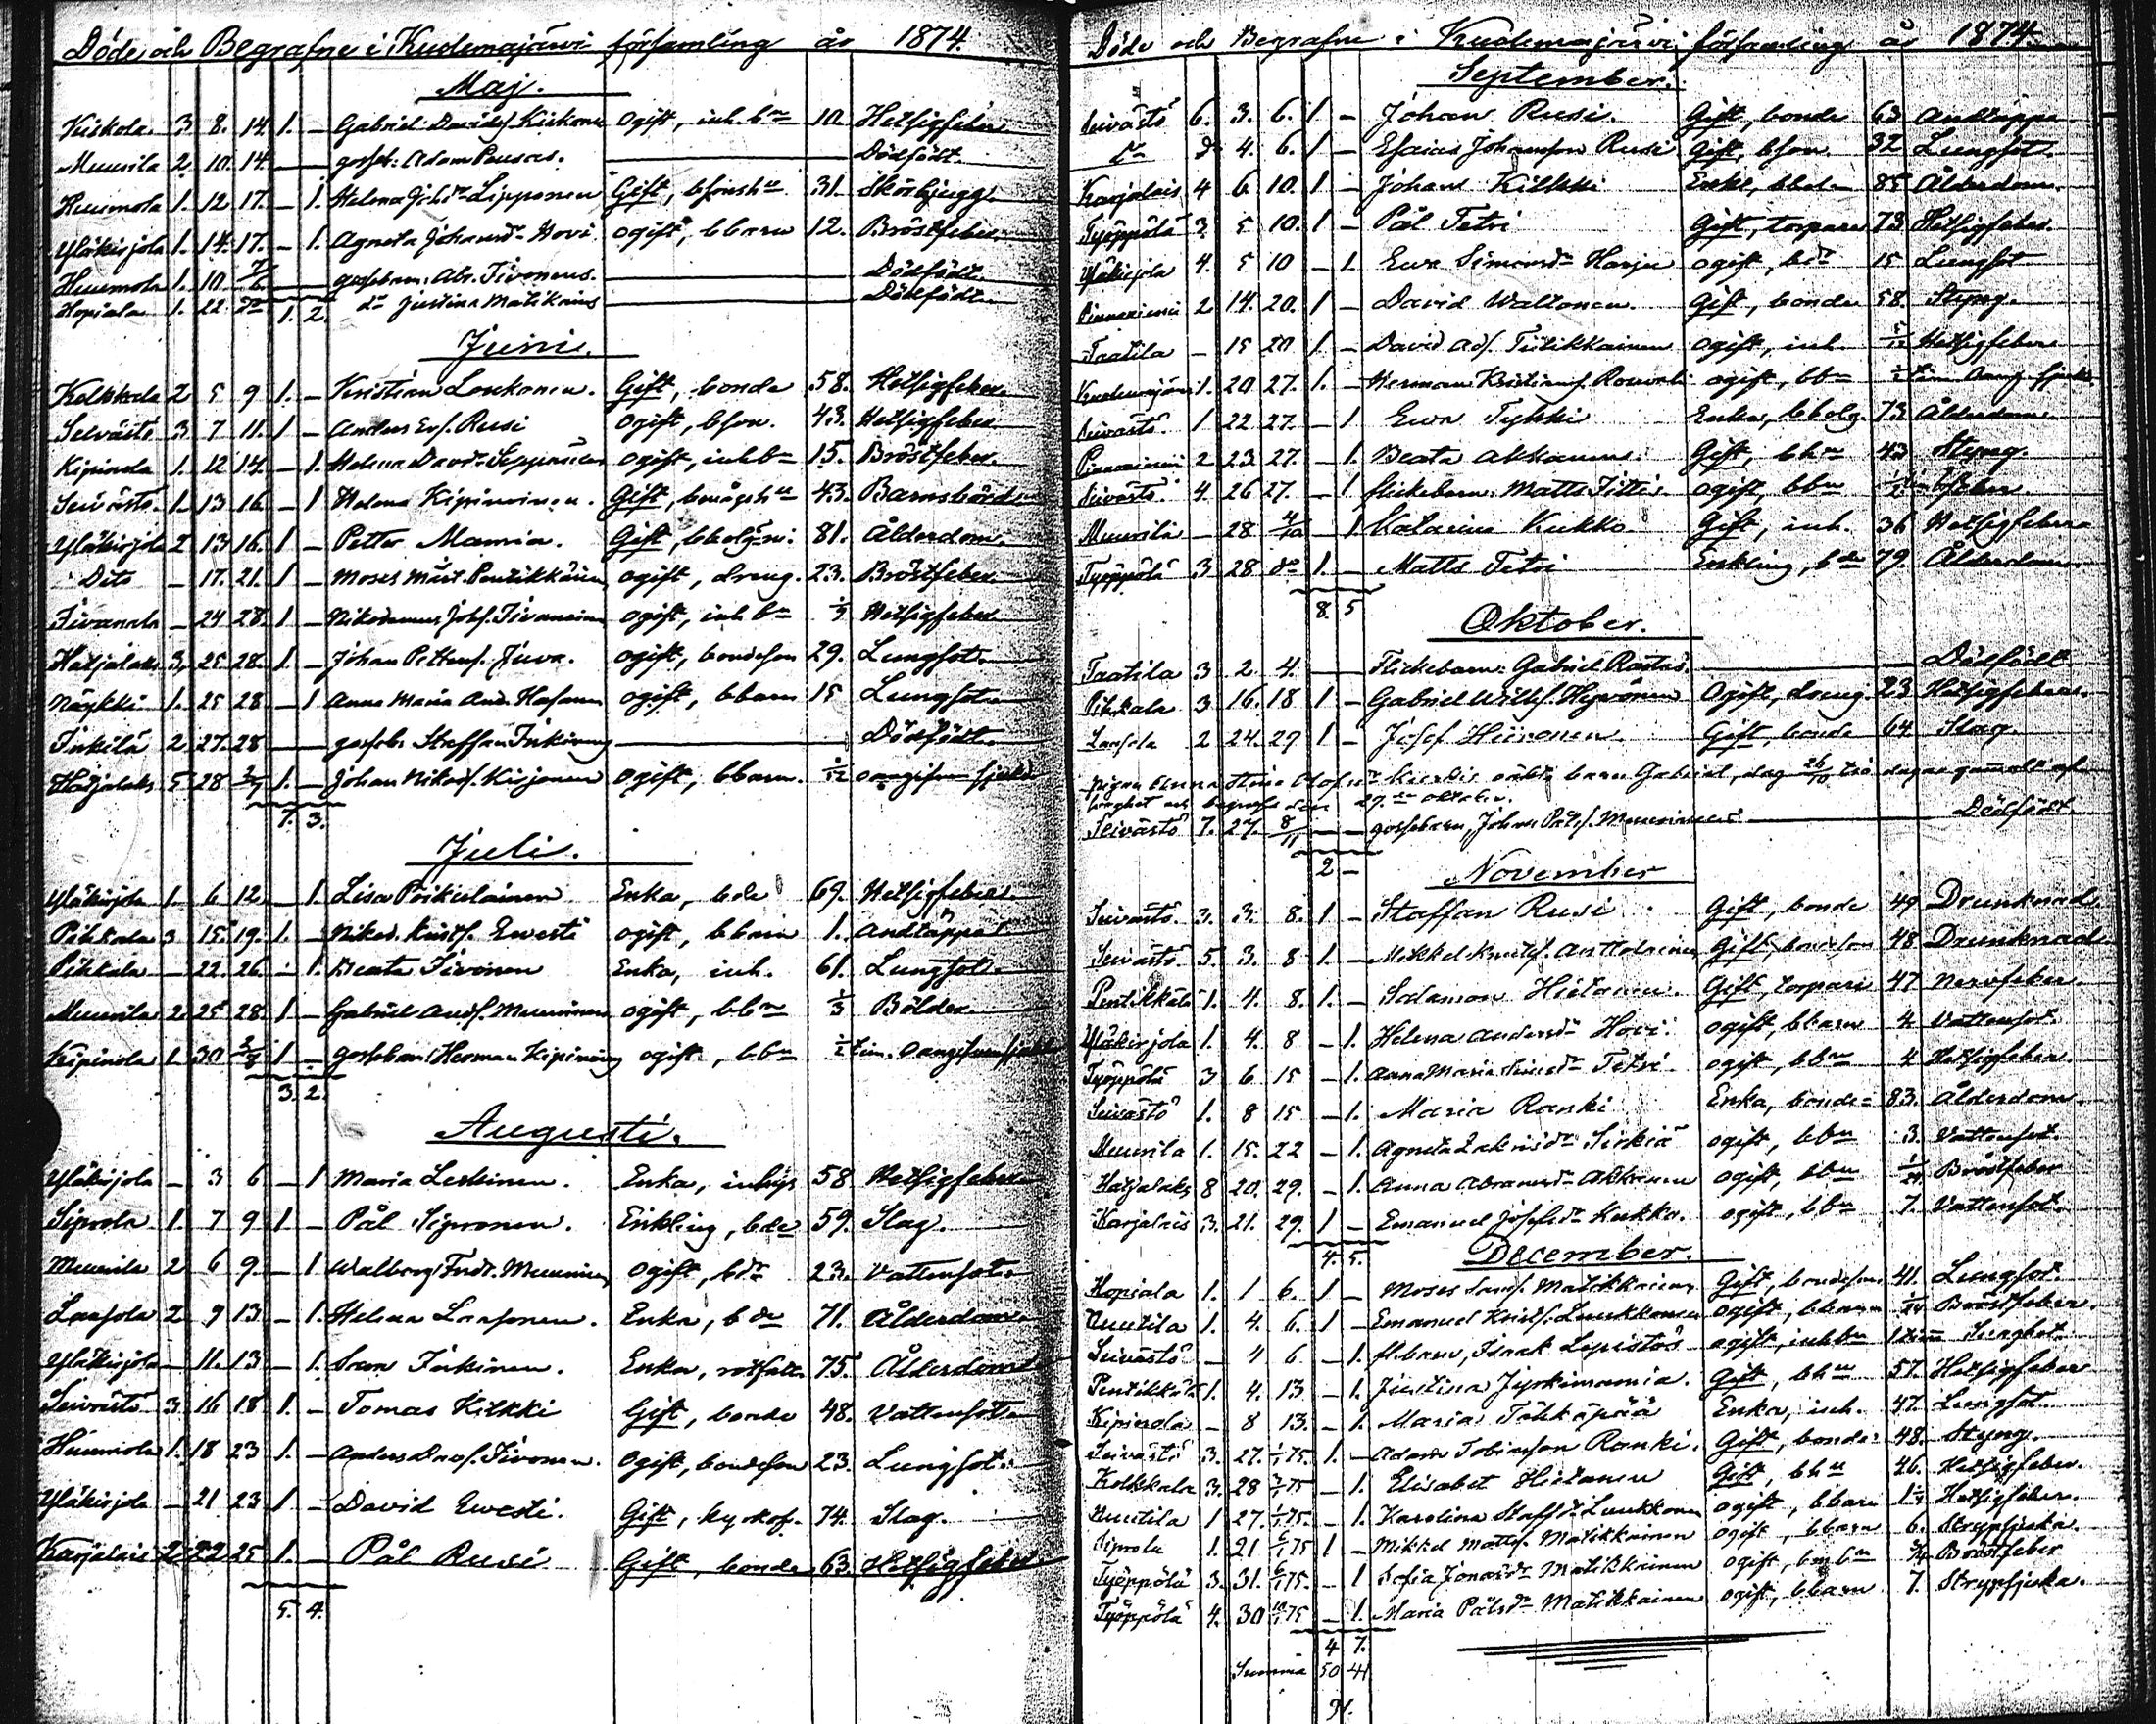 Döde och Begrafne i Kuolemajärvi församling år 1874.
Maj.
Kiskola. 3 8. 14. 1. – Gabriel Davidsf. Kiskonen ogift, inh. bn 10 Hetsigfeber
Muurila 2. 10. 14. — gosseb: Adam Pousas. — Dödfödt.
Huumola 1. 12 17. – 1. Helena Johsdr Lipponen Gift, 31. Skörbjugg.
Yläkirjola 1. 14. 17. – 1. Agneta Johansdr Hovi ogift, bbarn 12. Bröstfeber.
Huumola 1. 10 gossebarn: Abr. Sivonens. — Dödfödt.
Hopiala 1. 22. dn dn Justina Matikains — Dödfödt.
1. 2.
Juni.
Kolkkala 2 5 9 1. – Kristian Loukonen. Gift, bonde 58. Hetsigfeber.
Seivästö 3 7 11. 1 – Anders Rusi ogift, bson. 43. Hetsigfeber
Kipinola 1. 12 14. – 1. Helena Davdr Seppäinen ogift, inh bn 15. Bröstfeber.
Seivästö. 1 13 16. – 1 Helena Kipinoinen. Gift, bmågh 43. Barnsbörd
Yläkirjola 2 13 16. 1 – Petter Mamia. Gift, 81. Ålderdom.
Dito – 17. 21. 1 – Moses Mårt. Pentikkäinen ogift, dreng. 23. Bröstfeber
Sivanala – 24 28. 1 – Nikodemus Johsf. Sivonen ogift, inh bn Hetsigfeber
Hatjalaks 3, 25 28. 1. – Johan Pettersf. Juva. ogift, bondeson 29. Lungsot.
Näykki 1. 25 28 – 1 Anna Maria And. ogift, bbarn 15 Lungsot.
Inkilä 2. 27. 28 — gosseb: Staffan — Dödfödt.
Hatjalaks 5. 28 2/7 1. – Johan Nikodsf. Kirjonen ogift, bbarn. 1/12 oangifven sjukd
7. 3.
Juli.
Yläkirjola 1. 6 12 – 1. Lisa Pöikiläinen Enka, bde 69. Hetsigfeber.
Pihkala 3 15. 19. 1. – Nikod. Kristf. Ewesti ogift, bbarn 1. Andtäppa
Pihkala – 22. 26. – 1. Beata Sivonen Enka, inh. 61. Lungsot.
Muurila 2 25 28 1 – Gabriel Andsf. Muurinen ogift, bbn 1/3 Bölder.
Kipinola 1 30 2/8 1 – gossebarn: Herman Kipinoin ogift, bbn 1/2 tim. Oangifven sjukd
3. 2.
Augusti.
Yläkirjola – 3 6 – 1 Maria Leskinen. Enka, inhys 58 Hetsigfeber
Siprola 1. 7 9 1 – Pål Sipronen. Enkling, bde 59. Slag.
Muurila 2 6 9. – 1 Walborg Muurinen ogift, bdr 23. Vattensot.
Laasola 2 9 13 – 1. Helena Laasonen. Enka, bde 71. Ålderdom
Yläkirjola – 11. 13 – 1. Inkinen. Enka, rotfatt. 75. Ålderdom
Seivästö 3 16 18 1. – Tomas Kilkki Gift, bonde 48. Vattensot.
Huumola 1. 18 23 1. – Anders Davsf. Sivonen. Ogift, bondeson 23. Lungsot.
Yläkirjola – 21 23 1 – David Ewesti. Gift, kyrkof. 74. Slag.
Karjalais 2 22 25 1. – Pål Rusi Gift, bonde 63. Hetsigfeber
5. 4.
Döde och Begrafne i Kuolemajärvi församling år 1874.
September.
Seivästö 6. 3. 6. 1 – Johan Rusi. Gift, bonde 63 Andtäppa
dn 4. 6. 1 – Esaias Johansson Rusi Gift, bson. 32 Lungsot.
Karjalais 4 6 10. 1 – Johan Kilkki Enkl, 85 Ålderdom.
Työppölä 3. 5 10. 1 – Pål Tetri Gift, torpare 73 Hetsigfeber.
Yläkirjola 4. 5 10 – 1. Ewa Simonsdr Harju ogift, bdr 15 Lungsot
Pinnoniemi 2 14. 20. 1 – David Waltonen. Gift, bonde 58. Styng.
Taatila – 15 20 1 – David Adf. Tiitikkainen ogift, inh. Hetsigfeber
Kuolemajärvi 1. 20 27. 1. – Herman Kristiansf. ogift, bbn
Seivästö. 1 22 27. – 1 Ewa Tykki Enka, 73. Ålderdom.
Pinnoniemi 2 23 27. – 1. Beata Akkanen. Gift, bhu 43 Styng.
Seivästö. 4. 26 27. – 1 flickebarn: Matts ogift, bbn
Muurila – 28 4/10 – 1. Katarina Kukko Gift, inh. 36 Hetsigfeber
Työppölä 3 28 dn 1. – Matts Tetri Enkling, bde 79 Ålderdom.
8. 5
Oktober.
Taatila 3 2 4. — Flickebarn: Gabriel Rastas. — Dödfödt
Pihkala 3 16. 18 1 – Gabriel Willsf. Hyvönen Ogift, dreng. 23 Hetsigfeber.
Laasola 2 24. 29 1 – Josef Hiironen. Gift, bonde 64 Slag.
pigan Anna Stina Olofsdr oäkta barn Gabriel, dog 26/10 två dagar gammalt af
och begrafs den 29.de Oktober.
Seivästö 7. 27. 8/11 — gossebarn, Johan Pålsf. Muurinens — Dödfödt
2 –
November
Seivästö. 3. 3. 8. 1 – Staffan Rusi Gift, bonde 49 Drunknad.
Seivästö. 5. 3. 8 1. – Mikkel Knutsf. Anttolainen Gift, bondeson 48 Drunknad.
Pentikkälä 1. 4. 8. 1. – Salamon Hietanen. Gift, torpare 47 Nervfeber.
Yläkirjola 1. 4. 8 – 1. Helena Andersdr Hovi. ogift, bbarn 4. Vattensot.
Työppölä 3 6 15 – 1. Anna Maria Simsdr Tetri ogift, bbn 4 Hetsigfeber.
Seivästö 1. 8 15 – 1. Maria Ranki Enka, bonde 83. Ålderdom.
Muurila 1. 15. 22 – 1. Agneta Zakrisdr Sirkiä ogift, bbn 3. Vattensot.
Hatjalaks 8 20. 29. – 1. Anna Abramsdr Akkanen ogift, bbn 1/24 Bröstfeber
Karjalais 3. 21. 29. 1 – Emanuel Josefs. Kukko. ogift, bbn 7. Vattensot.
4. 5.
December.
Hopiala 1. 1 6. 1 – Moses Matikkainen Gift, bondeson 41. Lungsot.
Huutila 1. 4. 6. 1 – Emanuel Kristf. Luukkonen ogift, bbarn 1/24 Bröstfeber.
Seivästö – 4 6 – 1. flbarn, Isaak Lepistös ogift, inhbn 1 tim
Pentikkälä 1. 4. 13 – 1. Justina Jyrkimamia. Gift, bhu 57. Hetsigfeber
Kipinola – 8 13. – 1. Maria Tähkäpää Enka, inh. 47. Lungsot.
Seivästö 3. 27. 75. 1. – Adam Tobiasson Ranki. Gift, bonde 48. Styng.
Kolkkala 3. 28 75 – 1. Elisabet Hietanen Gift, bhu 46. Hetsigfeber.
Huutila 1 27. 75. – 1. Karolina Staffdr Luukkonen ogift, bbarn Hetsigfeber.
Siprola 1. 21 75 1 – Mikkel Mattsf. Matikkainen ogift, bbarn 6. Strypsjuka.
Työppölä 3. 31. 75. – 1 Sofia Jonasdr Matikkainen ogift, Bröstfeber
Työppölä 4. 30 75 – 1. Maria Pålsdr Matikkainen ogift, bbarn 7. Strypsjuka.
4 7.
Summa 50 41
91.